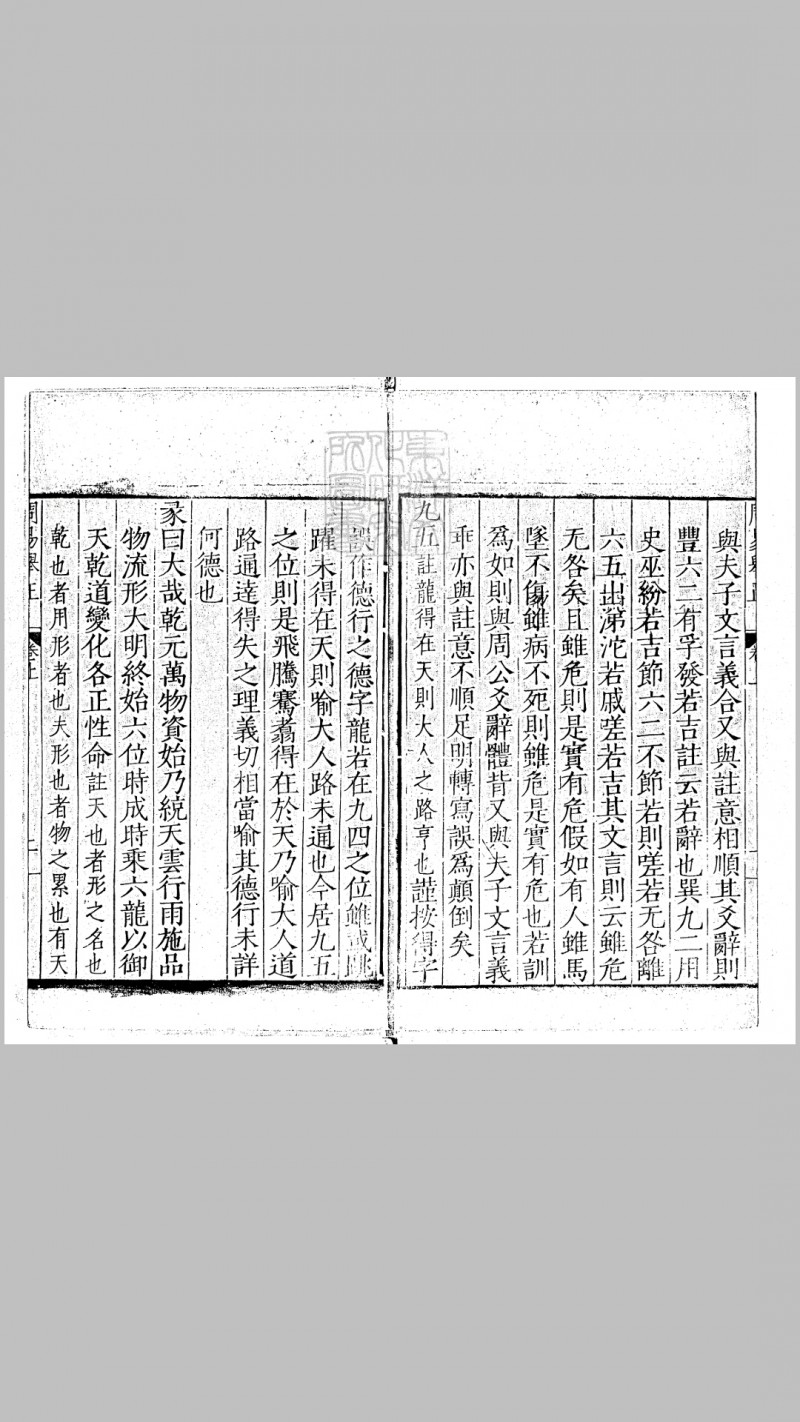 與夫子文言義合又與註意相順其爻辭則
豐六二有孚發若吉註云若辭也巽九二用
史巫紛若吉節六三不節若則嗟若无咎離
六五出涕沱若戚嗟若吉其文言則云雖危
无咎矣且雖危則是實有危假如有人雖馬
墜不傷雖病不死則雖危是實有危也若訓
爲如則與周公爻辭體背又與夫子文言義
乖亦與註意不順足明轉寫誤爲顛倒矣
九五註龍得在天則大人之路亨也謹按得字
誤作德行之德字龍若在九四之位雖或跳
躍未得在天則喻大人路未通也今居九五
之位則是飛騰騫翥得在於天乃喻大人道
路通達得失之理義切相當喻其德行未詳
何德也
彖曰大哉乾元萬物資始乃統天雲行雨施品
物流形大明終始六位時成時乘六龍以御
天乾道變化各正性命註天也者形之名也
乾也者用形者也夫形也者物之累也有天
周易舉正
卷上